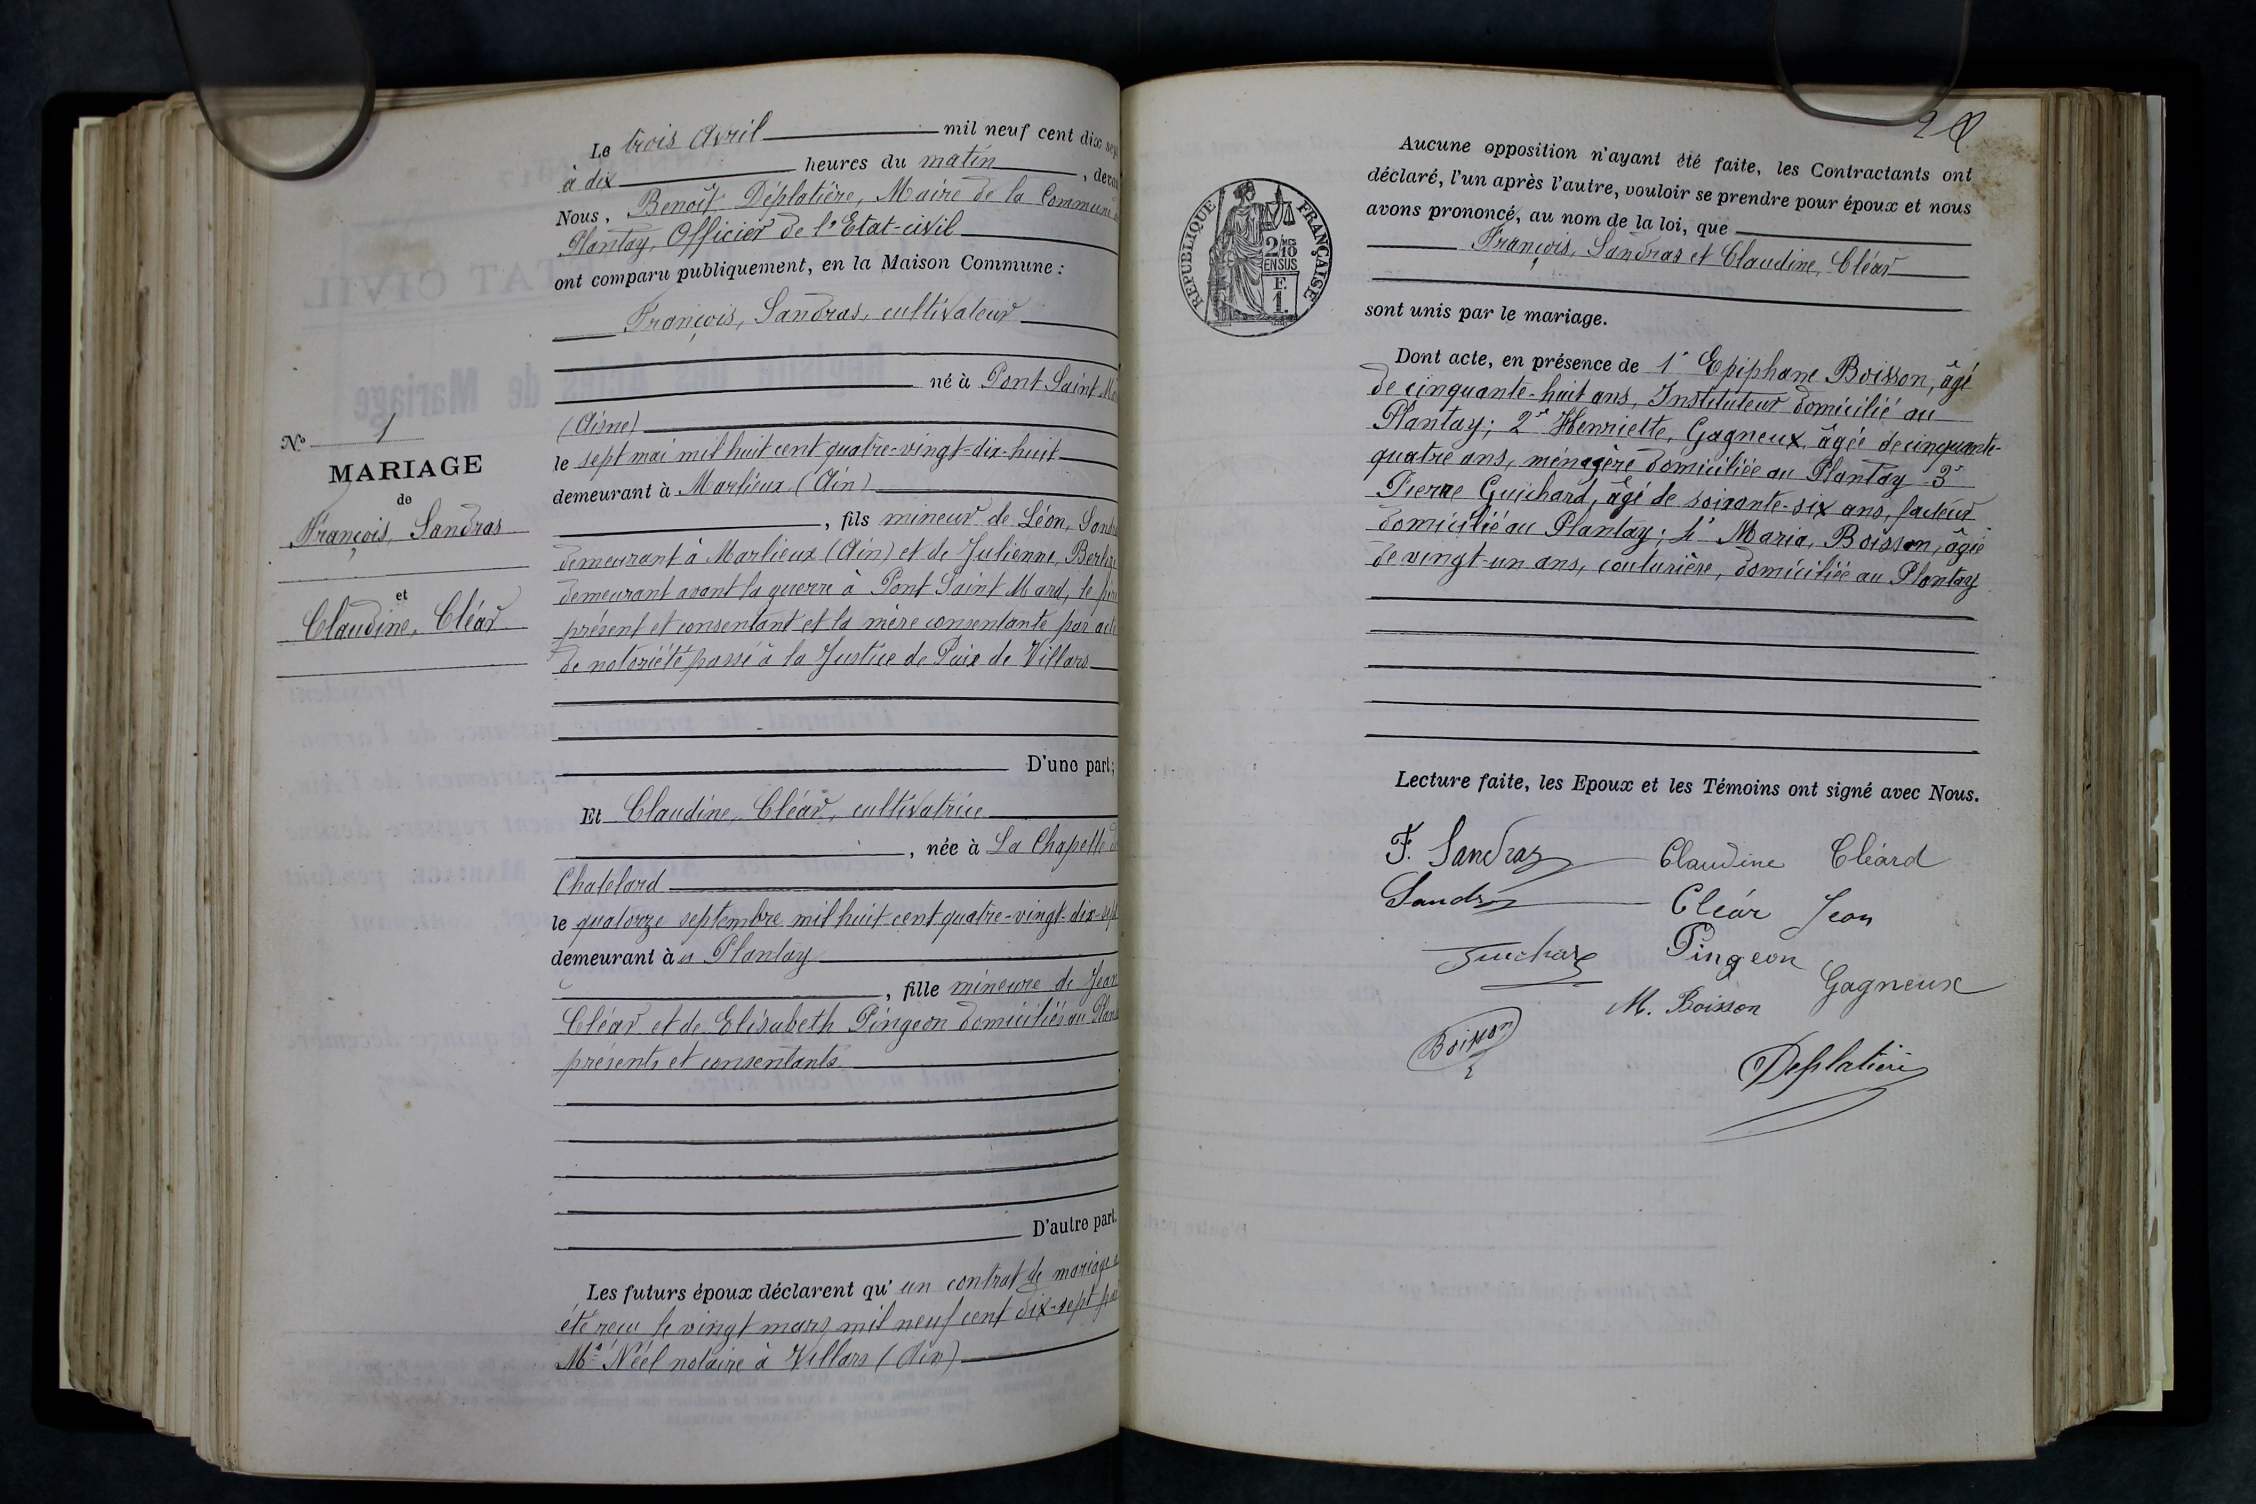 Le trois Avril mil neuf cent dix sep
à dix heures du matin, devan
Nous, Benoît Déplatière, Maire de la Commune
Plantay, Officier de l'Etat-civil
ont comparu publiquement, en la Maison Commune :
François, Sandras, cultivateur
né à Pont Saint Ma
(Aisne)
le sept mai mil huit cent quatre-vingt-dix-huit
demeurant à Marlieux (Ain)
, fils mineur de Léon, Sandra
demeurant à Marlieux (Ain) et de Julienne,
demeurant avant la guerre à Pont Saint Mard, le père
présent et consentant et la mère consentante par acte
de notoriété passé à la Justice de Paix de Villars
D'une part;
Et Claudine, Cléar, cultivatrice
, née à La Chapelle d
Chatelard
le quatorze septembre mil huit cent quatre-vingt-dix-sept
demeurant à u Plantay
, fille mineure de Jean
Cléar et de Elisabeth Pingeon domiciliés au Plan
présents et consentants
D'autre part.
Les futurs époux déclarent qu' un contrat de mariage a
été reçu le vingt mars mil neuf cent dix-sept par
Me Néel notaire à Villars (Ain)
No 1
MARIAGE
de
François, Sandras
et
Claudine, Cléar
2
Aucune opposition n'ayant été faite, les Contractants ont
déclaré, l'un après l'autre, vouloir se prendre pour époux et nous
avons prononcé, au nom de la loi, que
François, Sandras et Claudine, Cléar
sont unis par le mariage.
RÉPUBLIQUE FRANÇAISE
2/10
EN SUS
F.
1.
Dont acte, en présence de 1° Epiphane Boisson, âgé
de cinquante-huit ans, Instituteur domicilié au
Plantay; 2° Henriette, Gagneux, âgée de cinquante-
quatre ans, ménagère domiciliée au Plantay 3°
Pierre Guichard, âgé de soixante-six ans, facteur
domicilié au Plantay; 4° Maria, Boisson, âgée
de vingt-un ans, couturière, domiciliée au Plantay
Lecture faite, les Epoux et les Témoins ont signé avec Nous.
F. Sandras Claudine Cléard
Sandras Cléar Jean
Guichard Pingeon
Gagneux
M. Boisson
Boisson
Deplatière